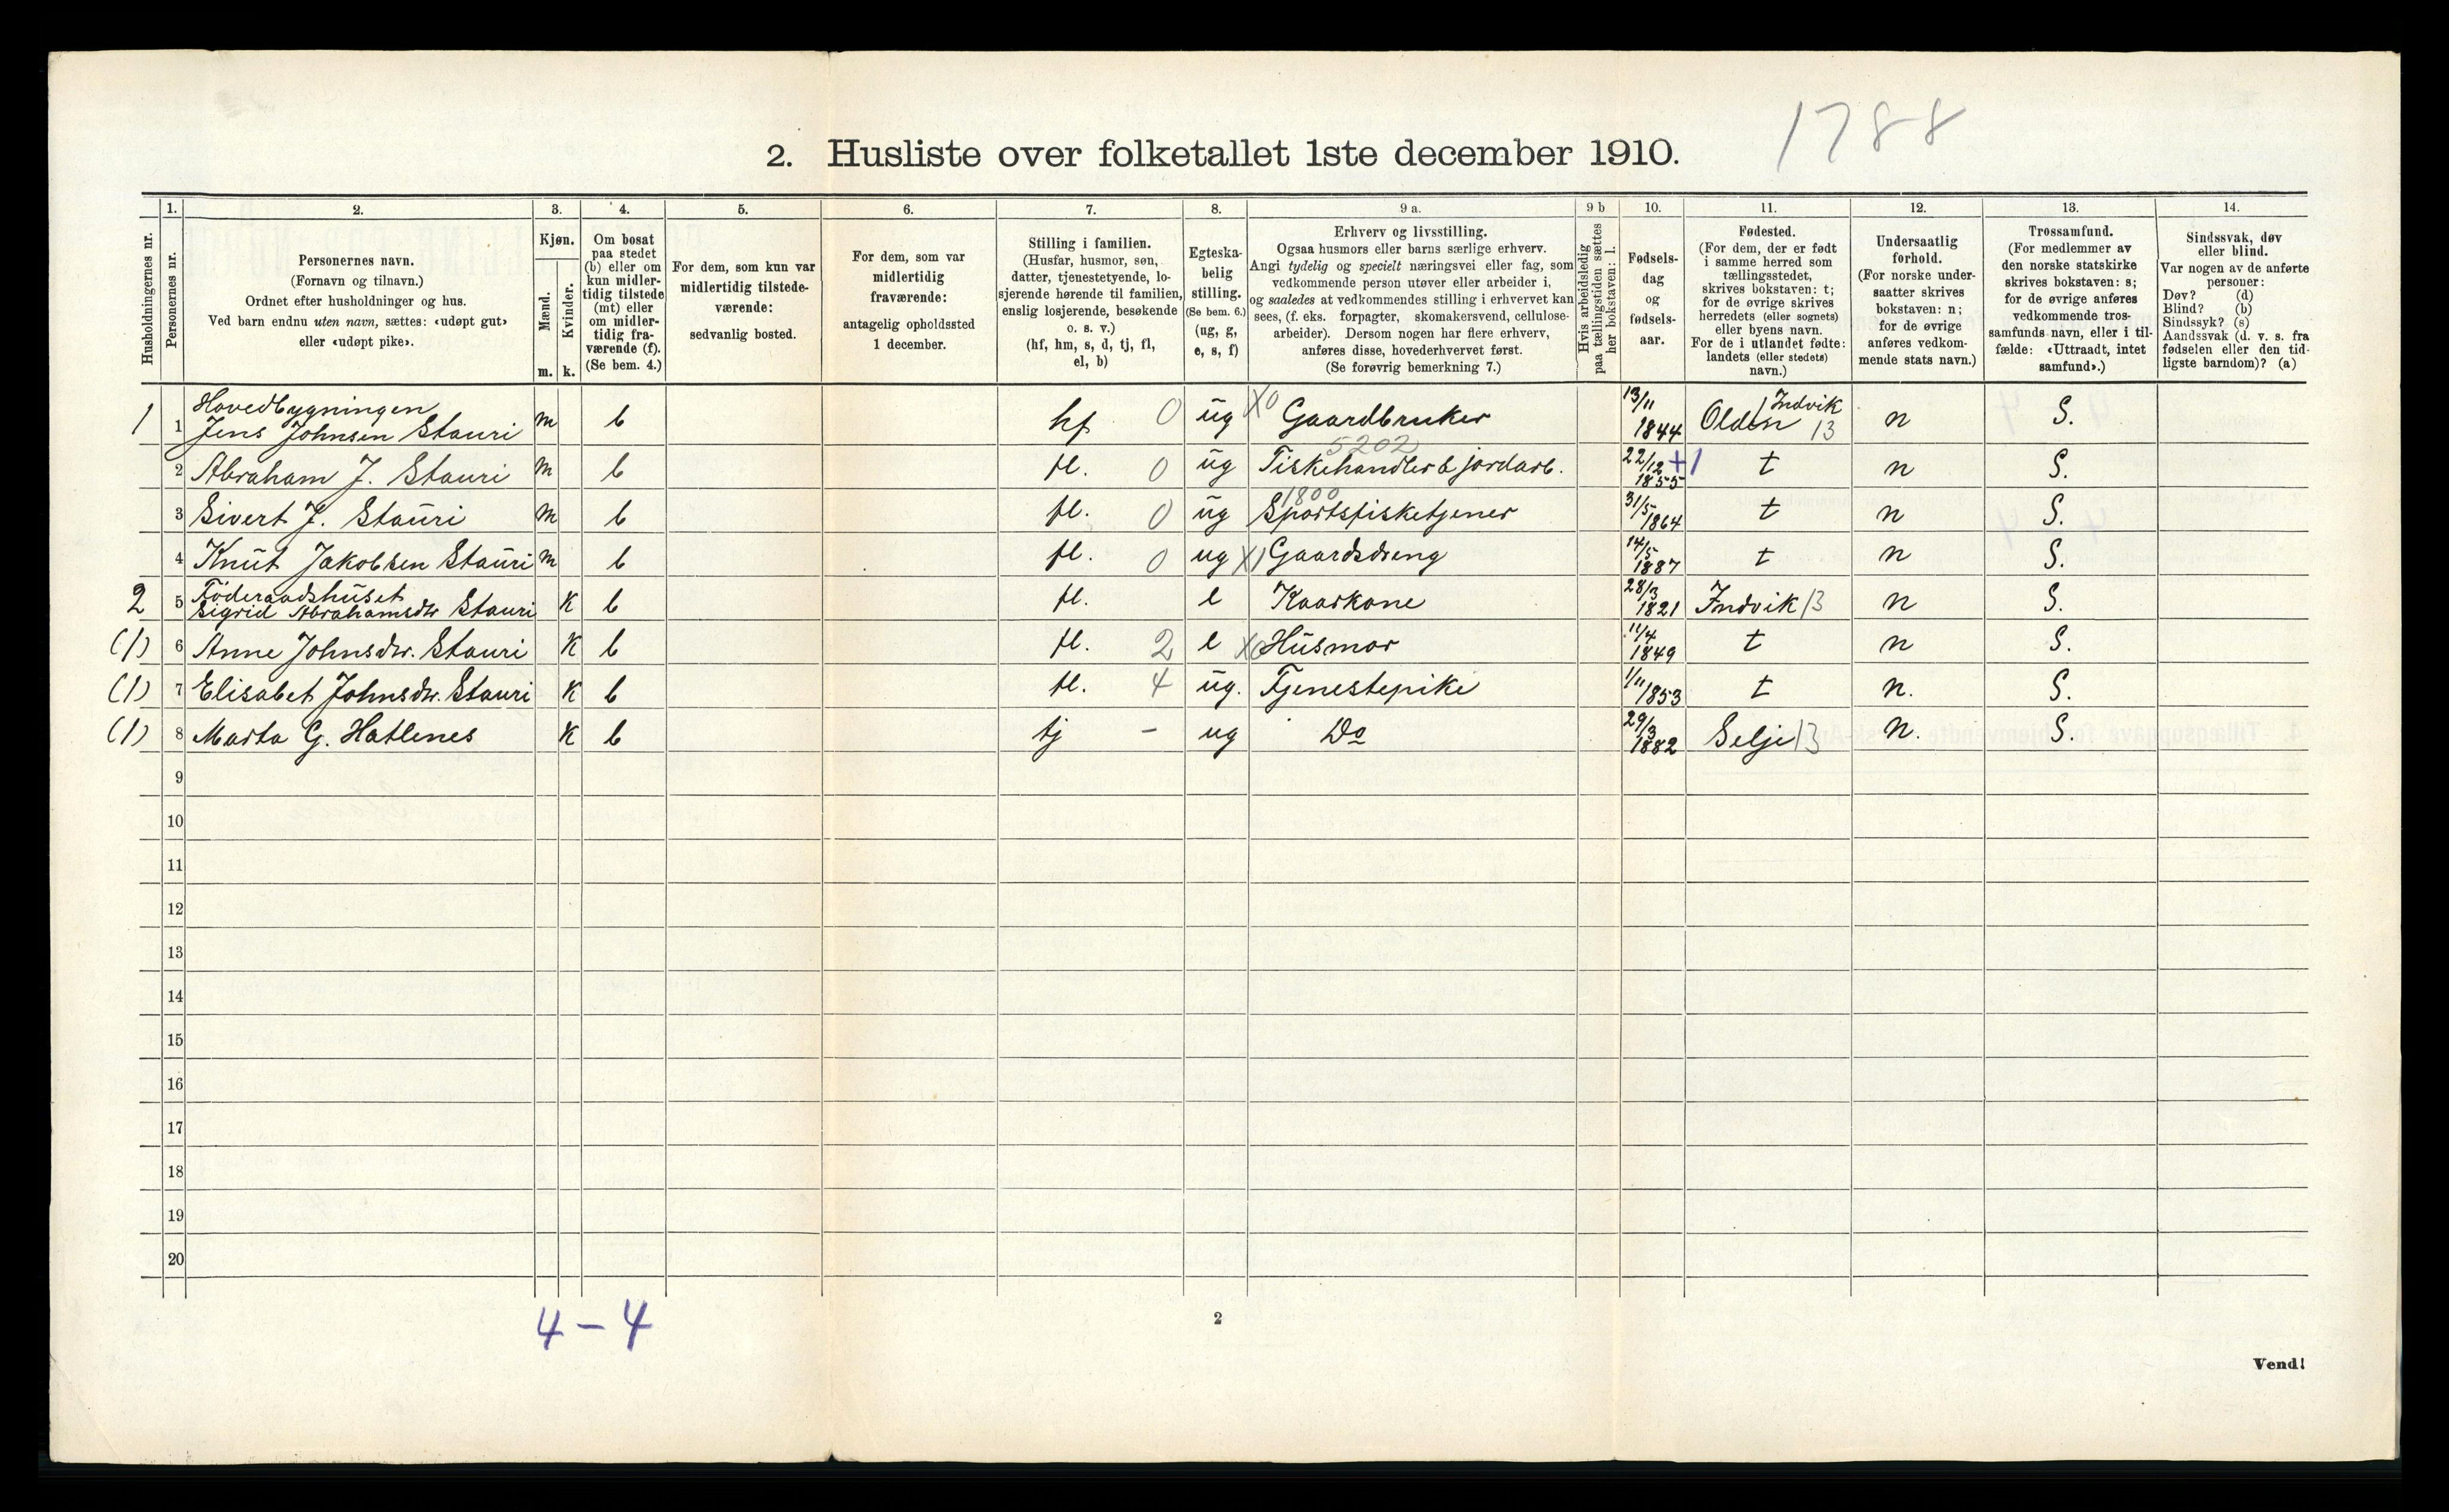 1788
2. Husliste over folketallet 1ste december 1910.
Husholdningernes nr.
1.
Personernes nr.
2.
Personernes navn.
(Fornavn og tilnavn.)
Ordnet efter husholdninger og hus.
Ved barn endnu uten navn, sættes: «udøpt gut»
eller «udøpt pike».
3.
Kjøn.
Mænd.
Kvinder.
m. k.
4.
Om bosat
paa stedet
(b) eller om
kun midler-
tidig tilstede
(mt) eller
om midler-
tidig fra-
værende (f).
(Se bem. 4.)
5.
For dem, som kun var
midlertidig tilstede-
værende:
sedvanlig bosted.
6.
For dem, som var
midlertidig
fraværende:
antagelig opholdssted
1 december.
7.
Stilling i familien.
(Husfar, husmor, søn,
datter, tjenestetyende, lo-
sjerende hørende til familien,
enslig losjerende, besøkende
o. s. v.)
(hf, hm, s, d, tj, fl,
el, b)
8.
Egteska-
belig
stilling.
(Se bem. 6.)
(ug, g,
e, s, f)
9 a.
Erhverv og livsstilling.
Ogsaa husmors eller barns særlige erhverv.
Angi tydelig og specielt næringsvei eller fag, som
vedkommende person utøver eller arbeider i,
og saaledes at vedkommendes stilling i erhvervet kan
sees, (f. eks. forpagter, skomakersvend, cellulose-
arbeider). Dersom nogen har flere erhverv,
anføres disse, hovederhvervet først.
(Se forøvrig bemerkning 7.)
9 b
Hvis arbeidsledig
paa tællingstiden sættes
her bokstaven: l.
10.
Fødsels-
dag
og
fødsels-
aar.
11.
Fødested.
(For dem, der er født
i samme herred som
tællingsstedet,
skrives bokstaven: t;
for de øvrige skrives
herredets (eller sognets)
eller byens navn.
For de i utlandet fødte:
landets (eller stedets)
navn.)
12.
Undersaatlig
forhold.
(For norske under-
saatter skrives
bokstaven: n;
for de øvrige
anføres vedkom-
mende stats navn.)
13.
Trossamfund.
(For medlemmer av
den norske statskirke
skrives bokstaven: s;
for de øvrige anføres
vedkommende tros-
samfunds navn, eller i til-
fælde: «Uttraadt, intet
samfund».)
14.
Sindssvak, døv
eller blind.
Var nogen av de anførte
personer:
Døv? (d)
Blind? (b)
Sindssyk? (s)
Aandssvak (d. v. s. fra
fødselen eller den tid-
ligste barndom)? (a)
Hovedbygningen
1 1 Jens Johnsen Stauri m b hf 0 ug X0 Gaardbruker 13/11 1844 Olden Indvik 13 n S.
5202
2 Abraham J. Stauri m b fl. 0 ug Fiskehandler & jordarb. 22/12 1855 +1 t n S.
1800
3 Sivert J. Stauri m b fl. 0 ug Sportsfisketjener 31/5 1864 t n S.
4 Knut Jakobsen Stauri m b fl. 0 ug X1 Gaardsdreng 14/5 1887 t n S.
Föderaadshuset
2 5 Sigrid Abrahamsdtr Stauri k b fl. e Kaarkone 28/3 1821 Indvik 13 n S.
(1) 6 Anne Johnsdtr. Stauri k b fl. 2 e X0 Husmor 11/4 1849 t n S.
(1) 7 Elisabet Johnsdtr. Stauri k b fl. 4 ug. Tjenestepike 1/11 1853 t n. S.
(1) 8 Marta G. Hatlenes k b tj - ug Do 29/3 1882 Selje 13 n. S.
9
10
11
12
13
14
15
16
17
18
19
20
4 - 4
2
Vend!